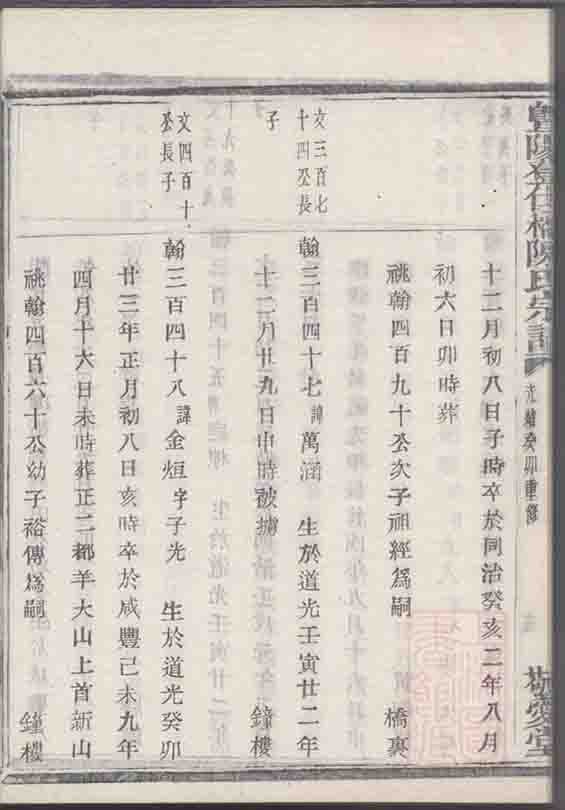 暨陽登仕橋陳氏宗譜 光緒癸卯重修 垂愛堂
十二月初八日子時卒於同治癸亥二年八月
初六日卯時葬
祧翰四百九十公次子祖經為嗣 橋裏
文三百七
十四公長
子
翰三百四十七諱萬涵 生於道光壬寅廿二年
十二月廿九日申時被擄 鐘樓
文四百十
公長子
翰三百四十八諱金烜字子光 生於道光癸卯
廿三年正月初八日亥時卒於咸豐己未九年
四月十六日未時葬正二都羊大山上首新山
祧翰四百六十公幼子裕傳為嗣 鐘樓